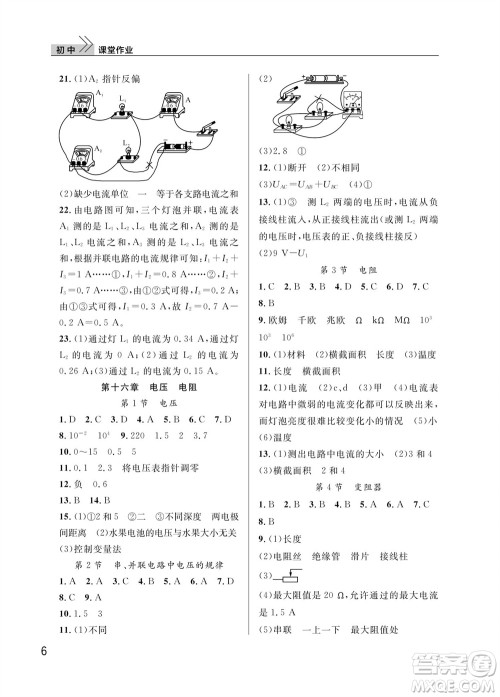 初中 课堂作业
21. (1)A₂ 指针反偏
A₁ L₁ A
A₂ L₂
(2)缺少电流单位 一 等于各支路电流之和
22. 由电路图可知，三个灯泡并联，电流表
A₁ 测的是 L₁、L₂ 电流之和，A 测的是
L₁、L₂、L₃ 电流之和，A₂ 测的是 L₂、L₃ 电流之
和，根据并联电路的电流规律可知：I₁＋I₂＋
I₃＝1 A……①，I₂＋I₃＝0.7 A……②，I₁＋
I₂＝0.7 A……③，由①②式可得，I₁＝
0.3 A，由①③式可得，I₃＝0.3 A，I₂＝0.7 A－
0.3 A＝0.4 A。
23. (1)通过灯 L₁ 的电流为 0.34 A，通过灯
L₂ 的电流为 0.16 A (2)通过灯 L₁ 的电流为
0.6 A，通过灯 L₂ 的电流为 0.15 A。
第十六章 电压 电阻
第 1 节 电压
1. D 2. D 3. B 4. A 5. A 6. C 7. C
8. 10⁻² 10⁶ 9. 220 1.5 2 串联
10. 0～15 0.5
11. 0.1 5 2.3 将电压表指针调零
12. C 13. B 14. B
15. (1)①2和5 ②二 ③不同深度 两电极
间距离 (2)水果电池的电压与水果种类无关
(3)控制变量法
第 2 节 串、并联电路中电压的规律
1. A 2. A 3. D 4. C 5. C 6. C 7. D
8. 6 9. 4.5 3
10. 1.5 3 1.5
11. (1)不同
(2)
(3)2.8 ①
12. (1)断开 (2)不相同
(3)U_AC＝U_AB＋U_BC
13. (1)③ 测 L₂ 两端的电压时，电流从负
接线柱流入，正接线柱流出(或测 L₂ 两端的
电压时，电压表的正、负接线柱接反)
(2)9 V－U₁
第 3 节 电阻
1. C 2. C 3. C 4. C 5. B 6. B 7. D
8. B
9. 欧姆 千欧 兆欧 Ω kΩ MΩ 10³
10³
10. (1)材料 (2)横截面积 长度
11. (1)横截面积 (2)长 (3)温度
12. (1)电流 (2)c、d (3)甲 (4)电流表
在电路中微弱的电流变化都可以明显显示，
而灯泡亮度很难比较变化小的情况 (5)小
(6)温度
13. (1)测出电路中电流的大小 (2)长度
(3)横截面积 2 和 4
第 4 节 变阻器
1. A 2. B 3. D 4. B 5. A 6. B 7. B
8. B
9. (1)长度
(2)电阻丝 绝缘管 滑片 接线柱
(3)
(4)最大阻值是 20 Ω，允许通过的最大电流
是 1 A
(5)串联 一上一下 最大阻值
6